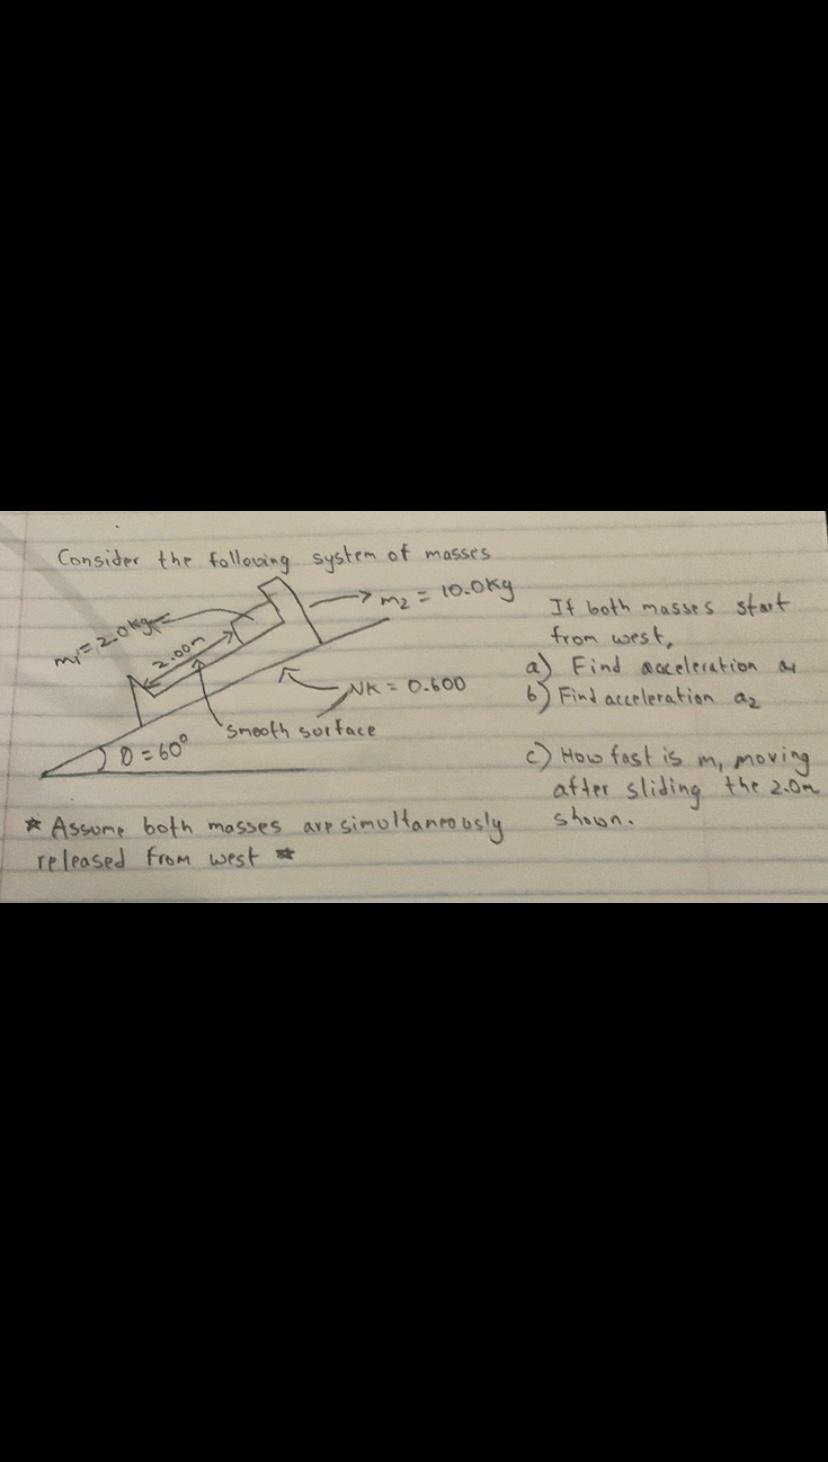 Consider the following system of masses
m1 = 2.0kg
2.00m
m2 = 10.0kg
μK = 0.600
smooth surface
θ = 60°
* Assume both masses are simultaneously
released from west *
If both masses start
from west,
a) Find acceleration a1
b) Find acceleration a2
c) How fast is m, moving
after sliding the 2.0m
shown.